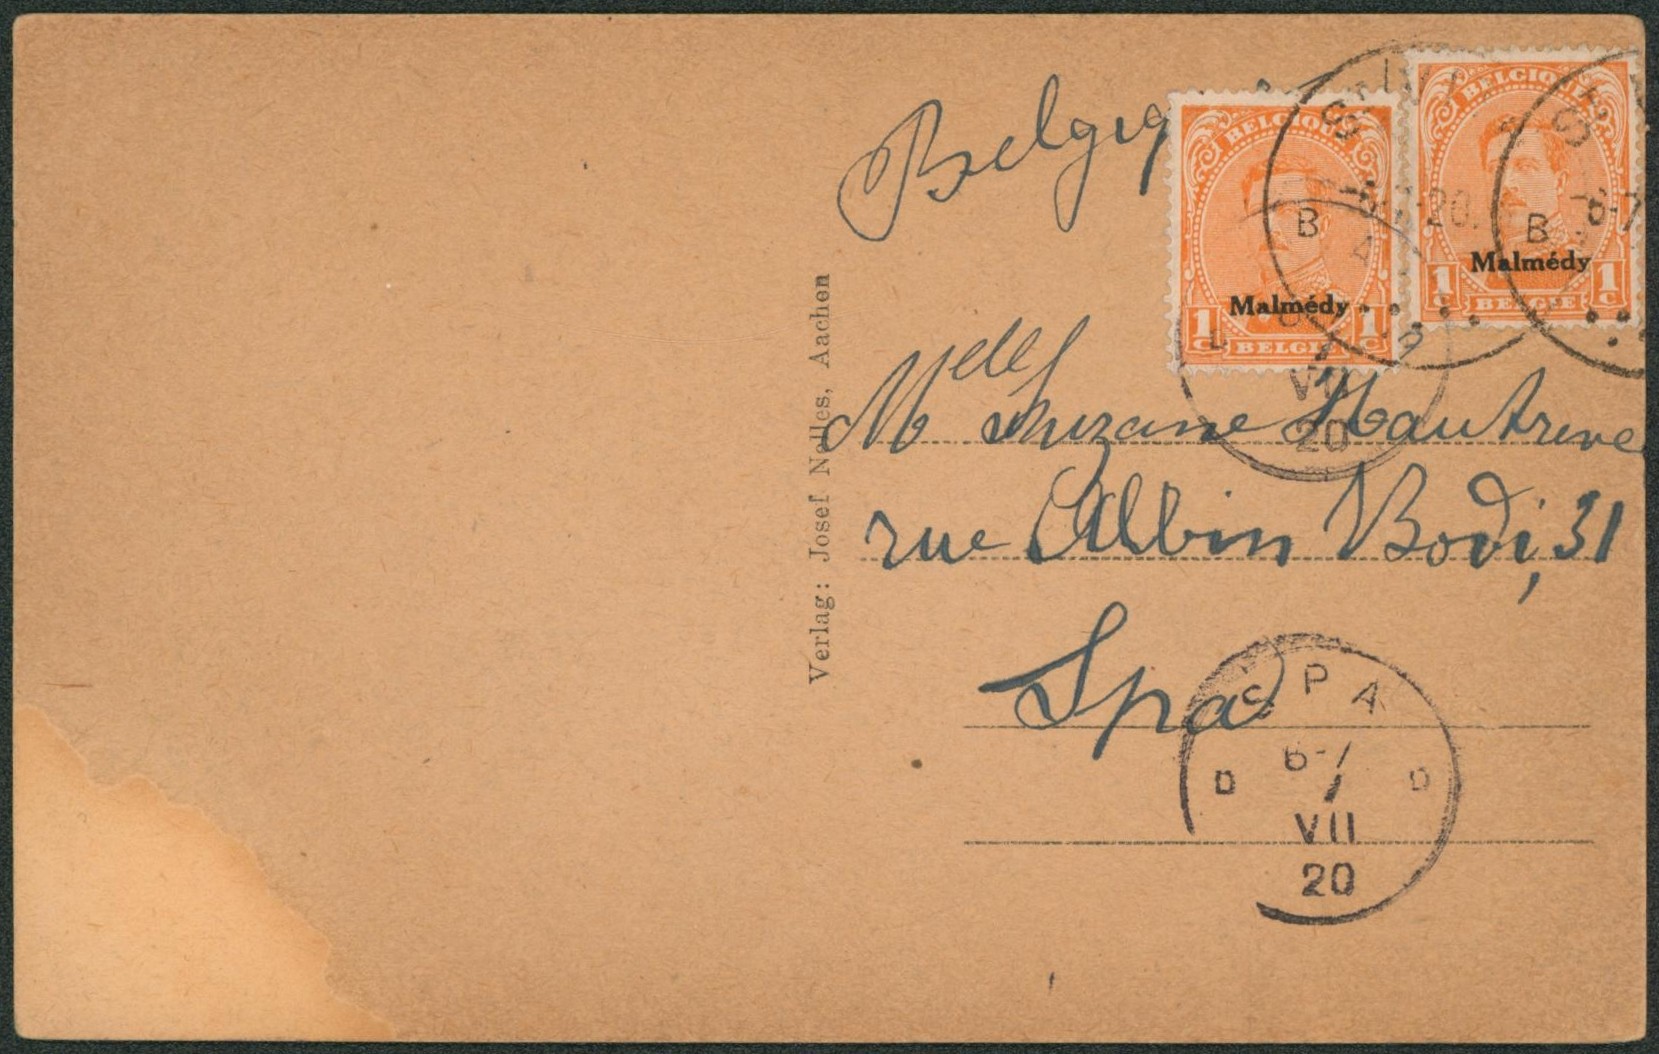 Belgiq
BELGIQUE
Malmédy
1 C 1 C
BELGIË
BELGIQUE
Malmédy
1 C 1 C
BELGIË
B
20
B
6-7
Melle Suzane Hautrive
VII
20
rue Albin Bodi, 31
Spa
SPA
6-7
D D
7
VII
20
Verlag: Josef Nelles, Aachen